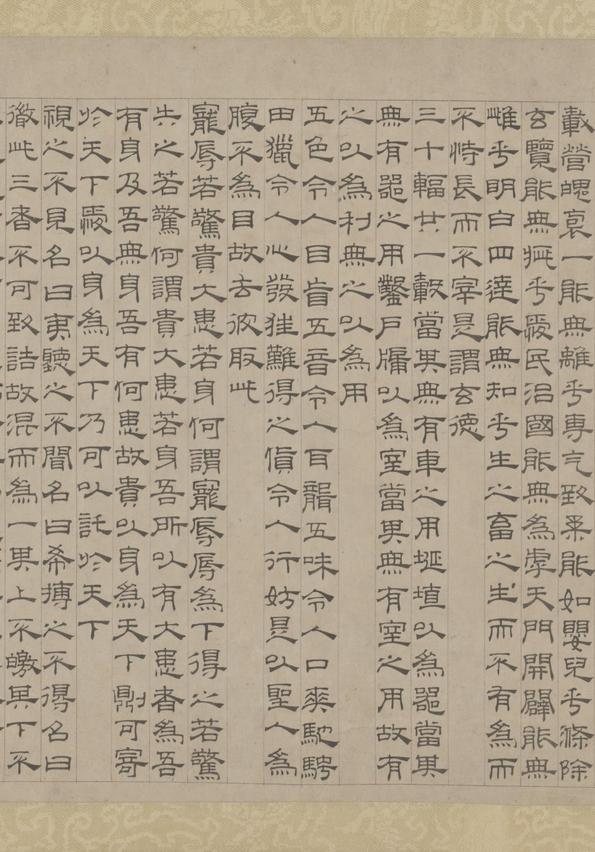 載營魄袌一能無離乎專气致柔能如嬰兒乎滌除
玄覽能無疵乎愛民治國能無為虖天門開闢能無
雌乎明白四達能無知乎生之畜之生而不有為而
不恃長而不宰是謂玄德
三十輻共一轂當其無有車之用埏埴以為器當其
無有器之用鑿戶牖以為室當其無有室之用故有
之以為利無之以為用
五色令人目盲五音令人耳聾五味令人口爽馳騁
田獵令人心發狂難得之貨令人行妨是以聖人為
腹不為目故去彼取此
寵辱若驚貴大患若身何謂寵辱辱為下得之若驚
失之若驚何謂貴大患若身吾所以有大患者為吾
有身及吾無身吾有何患故貴以身為天下則可寄
於天下愛以身為天下乃可以託於天下
視之不見名曰夷聽之不聞名曰希搏之不得名曰
微此三者不可致詰故混而為一其上不皦其下不